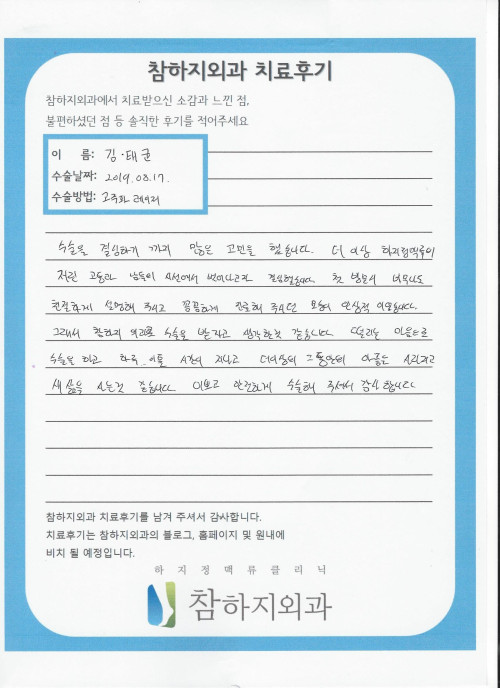 참하지외과 치료후기
참하지외과에서 치료받으신 소감과 느낀 점,
불편하셨던 점 등 솔직한 후기를 적어주세요
이 름: 김·태균
수술날짜: 2019. 08.17.
수술방법: 고주파 레이저
수술을 결심하기 까지 많은 고민을 했습니다. 더 이상 하지정맥류의
저린 고통과 남들의 시선에서 벗어나고자 결심했습니다. 첫 방문시 너무나도
친절하게 설명해 주시고 꼼꼼하게 진료해 주시던 모습이 인상적 이였습니다.
그래서 참하지 외과로 수술을 받자고 생각한것 같습니다. 떨리는 마음으로
수술을 하고 하루, 이틀 시간이 지나고 더이상의 그동안의 아픔은 사라지고
새 삶을 사는것 같습니다. 이쁘고 안전하게 수술해 주셔서 감사합니다.
참하지외과 치료후기를 남겨 주셔서 감사합니다.
치료후기는 참하지외과의 블로그, 홈페이지 및 원내에
비치 될 예정입니다.
하지정맥류클리닉
참하지외과